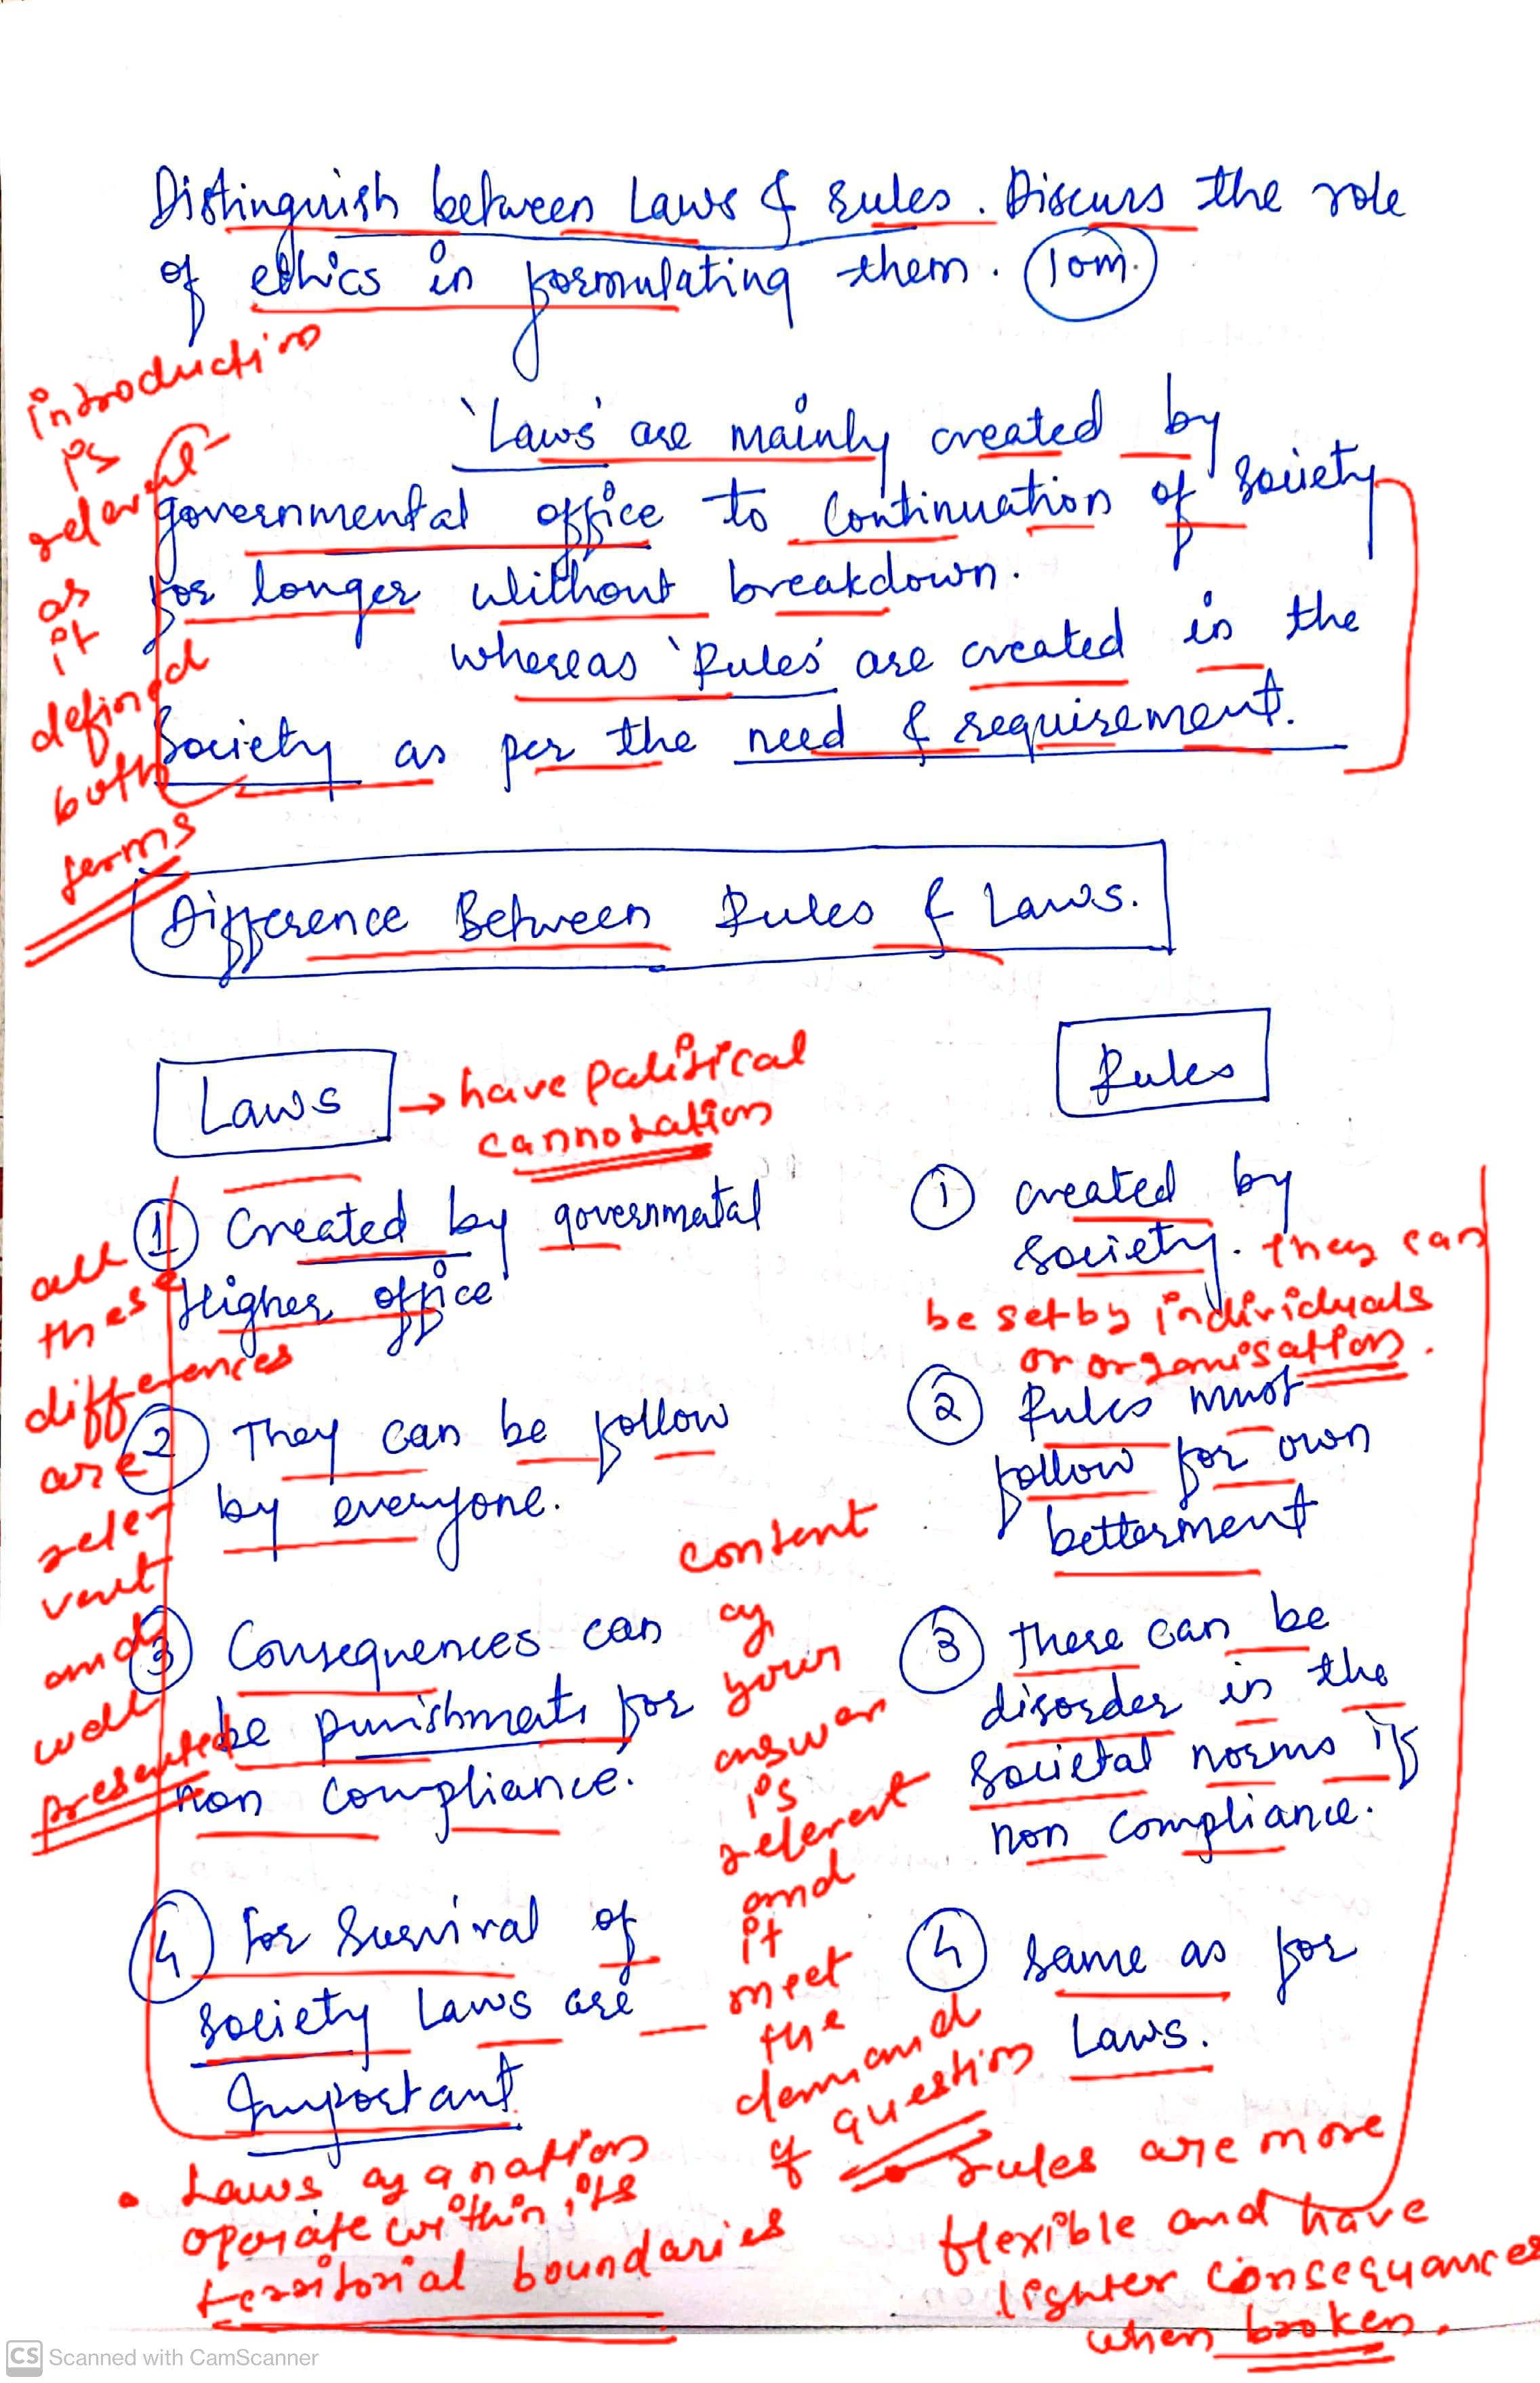 Distinguish between Laws & Rules. Discuss the role
of ethics in formulating them. (10m.)
introduction
is
relevant
as
it
defined
both
terms
'Laws' are mainly created by
governmental office to continuation of society
for longer without breakdown.
whereas 'Rules' are created in the
society as per the need & requirement.
Difference Between Rules & Laws.
Laws → have palitical
cannotation
all
these
differences
are
relevant
and
well
presented
① Created by governmatal
Higher office
② They can be follow
by everyone.
③ Consequences can
be punishments for
non compliance.
④ for Survival of
society Laws are
Important
• Laws of a nation
operate within its
territorial boundaries
content
of
your
answer
is
relevant
and
it
meet
the
demand
of question
Rules
① created by
society. they can
be set by individuals
or organisation.
② Rules must
follow for own
betterment
③ There can be
disorder in the
societal norms if
non compliance.
④ Same as for
Laws.
• rules are more
flexible and have
lighter consequances
when broken.
CS Scanned with CamScanner